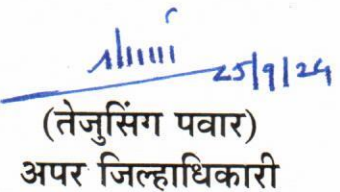 25/9/24
(तेजुसिंग पवार)
अपर जिल्हाधिकारी